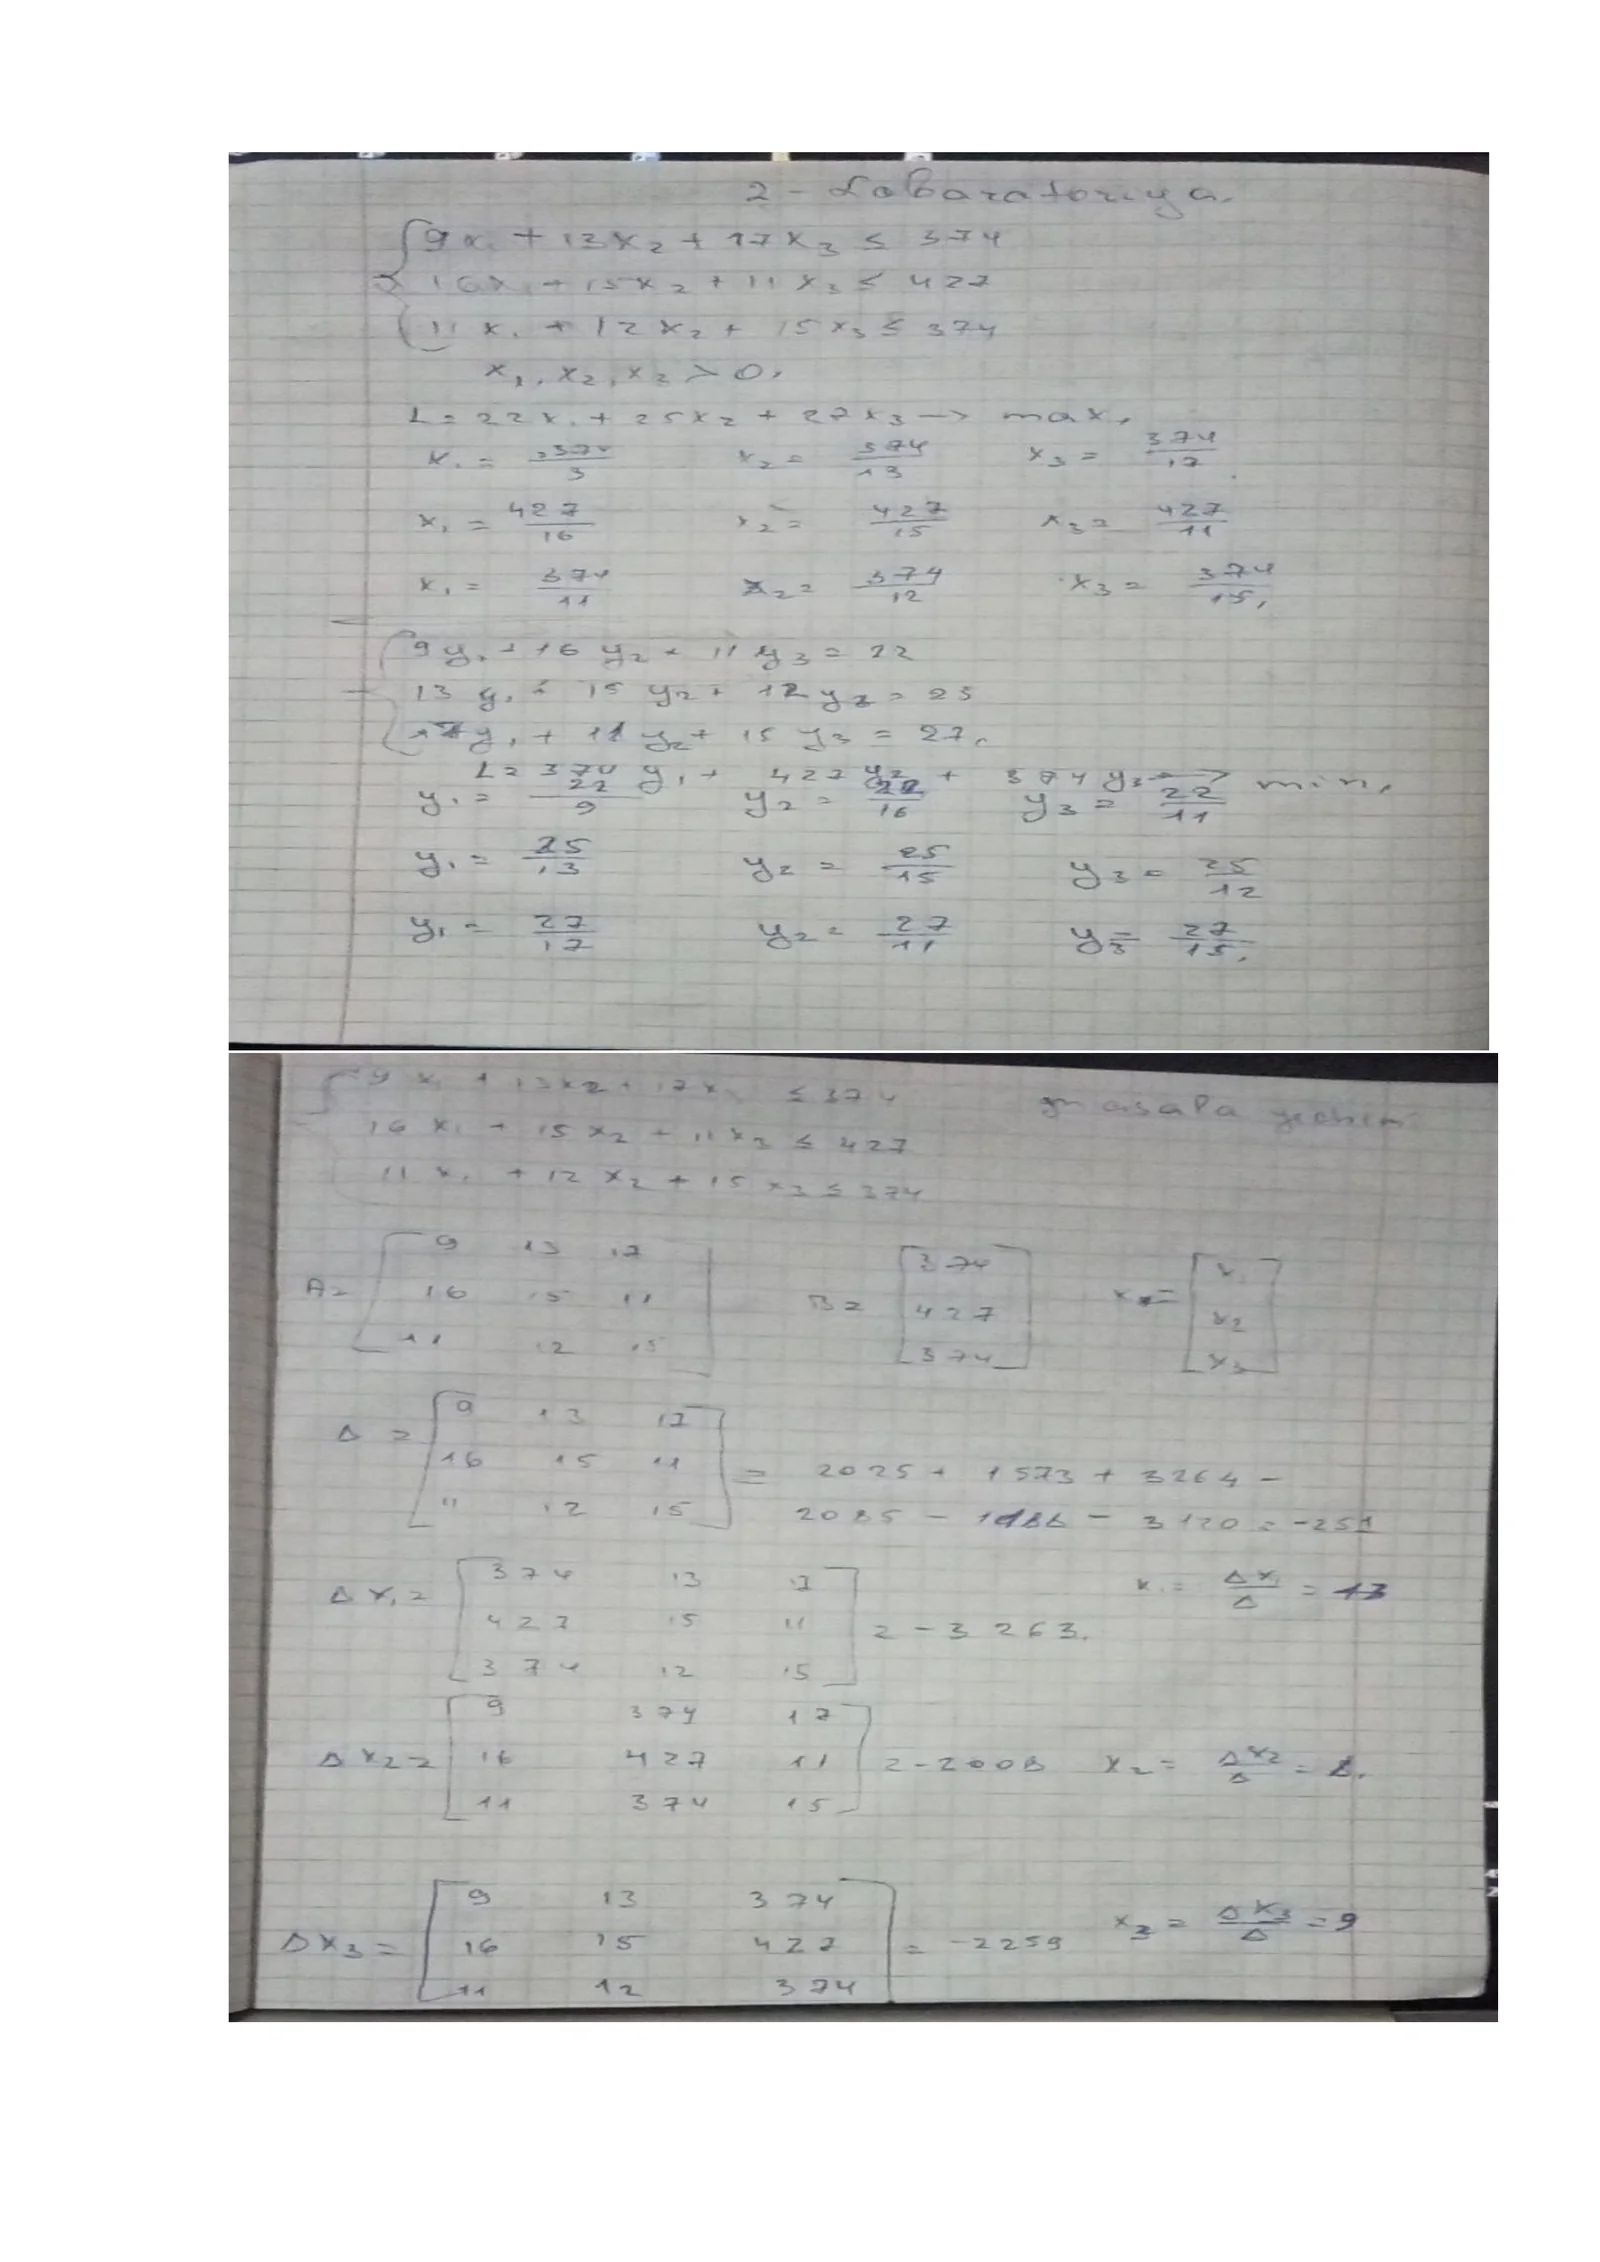 2 - Lobaratoriya.
9x₁ + 13x₂ + 17x₃ ≤ 374
16x₁ + 15x₂ + 11x₃ ≤ 427
11x₁ + 12x₂ + 15x₃ ≤ 374
x₁, x₂, x₃ > 0.
L = 22x₁ + 25x₂ + 27x₃ → max.
x₁ = 374/3 x₂ = 374/13 x₃ = 374/17
x₁ = 427/16 x₂ = 427/15 x₃ = 427/11
x₁ = 374/11 x₂ = 374/12 x₃ = 374/15.
9y₁ + 16y₂ + 11y₃ = 22
13y₁ + 15y₂ + 12y₃ = 25
17y₁ + 11y₂ + 15y₃ = 27.
L = 374y₁ + 427y₂ + 374y₃ → min.
y₁ = 22/9 y₂ = 22/16 y₃ = 22/11
y₁ = 25/13 y₂ = 25/15 y₃ = 25/12
y₁ = 27/17 y₂ = 27/11 y₃ = 27/15.
9x₁ + 13x₂ + 17x₃ ≤ 374
16x₁ + 15x₂ + 11x₃ ≤ 427
11x₁ + 12x₂ + 15x₃ ≤ 374
A = [9 13 17; 16 15 11; 11 12 15] B = [374; 427; 374] x = [x₁; x₂; x₃]
Δ = [9 13 17; 16 15 11; 11 12 15] = 2025 + 1573 + 3264 -
2085 - 1188 - 3120 = -251
Δx₁ = [374 13 17; 427 15 11; 374 12 15] = -3263. x₁ = Δx₁/Δ = 13
Δx₂ = [9 374 17; 16 427 11; 11 374 15] = -2008 x₂ = Δx₂/Δ = 8.
Δx₃ = [9 13 374; 16 15 427; 11 12 374] = -2259 x₃ = Δx₃/Δ = 9